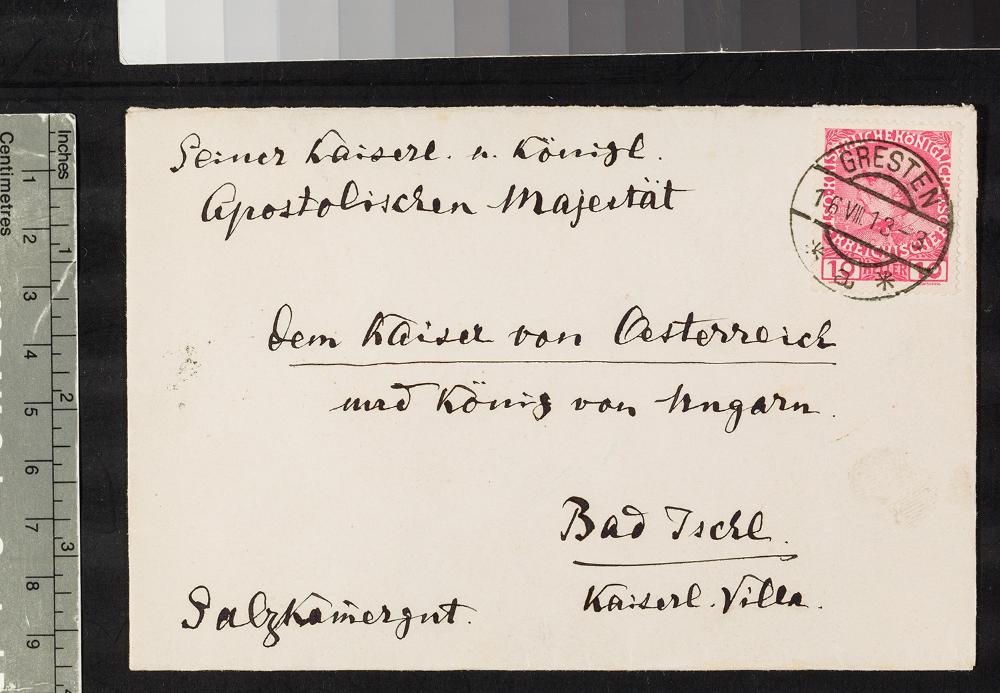 Seiner Kaiserl. u. Königl.
Apostolischen Majestät
dem Kaiser von Oesterreich
und König von Ungarn.
Bad Ischl.
Kaiserl. Villa.
Salzkam̄ergut.
GRESTEN
16 VIII.13-3
* a *
10 HELLER 10
Inches
1
2
3
Centimetres
1
2
3
4
5
6
7
8
9